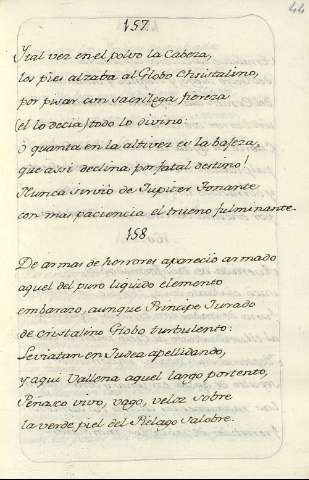 44
157.
Ytal vez en el polvo la Cabeza,
los pies alzaba al Globo Christalino,
por pisar con sacrilega fiereza
(el lo decia) todo lo divino:
ò quanta en la altivez es la bajeza,
que assi declina por fatal destino!
Nunca sirviò de Jupiter Tonante
con mas paciencia el trueno fulminante.
158.
De armas de horrores apareciò armado
aquel del puro liquido elemento
embarazo, aunque Principe Jurado
de cristalino Globo turbulento:
Leviatam en Judea apellidando,
y aqui Vallena aquel largo portento,
Penasco vivo, vago, veloz sobre
la verde piel del Pielago salobre.